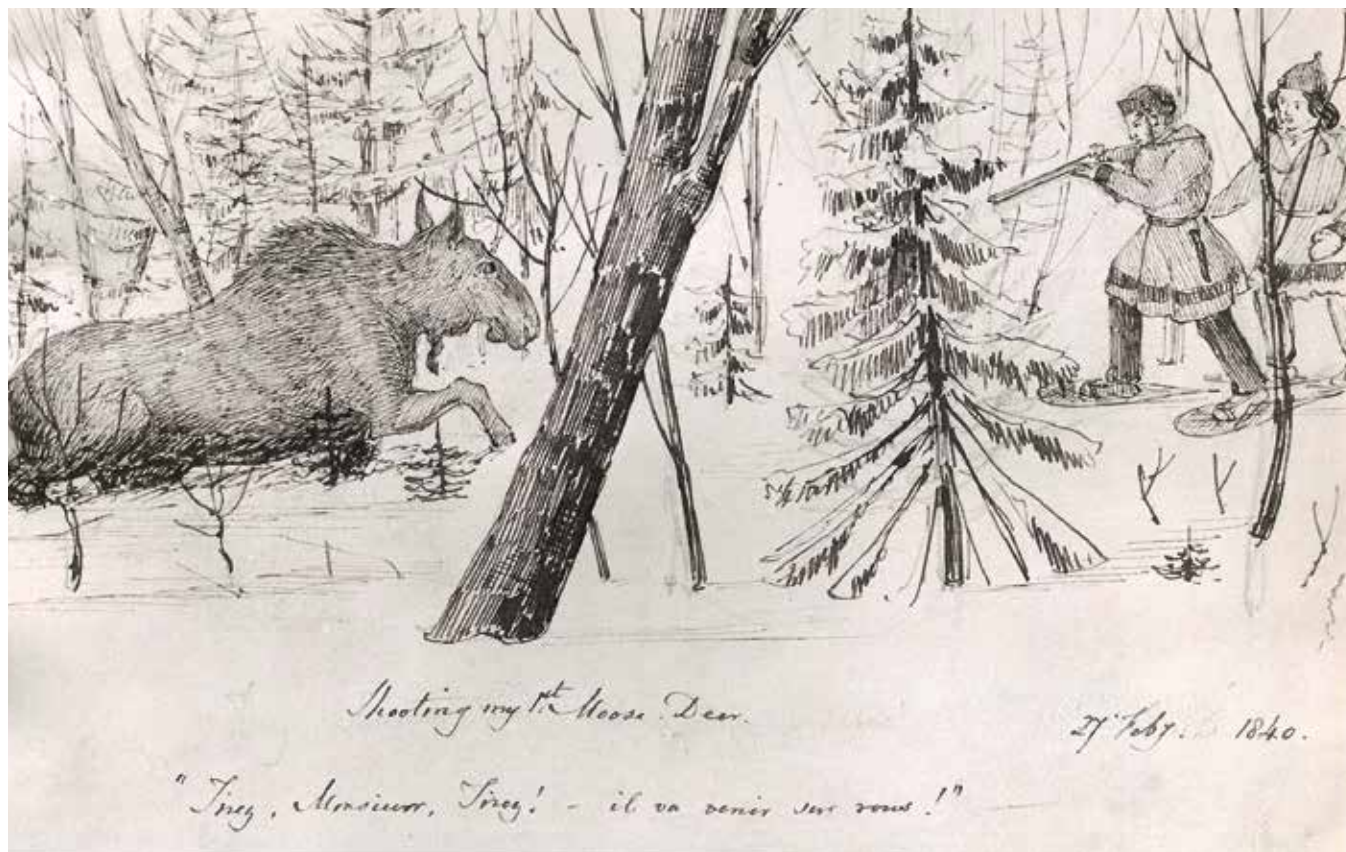 Shooting my 1st Moose Deer.
27 Feby. 1840.
"Tirez, Monsieur, Tirez! - il va venir sur vous!"